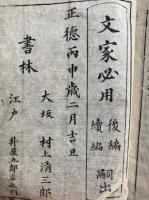 文家必用 後編 續編 嗣出
正德丙申歳二月吉旦
書林
大坂 村上清三郎
江戸